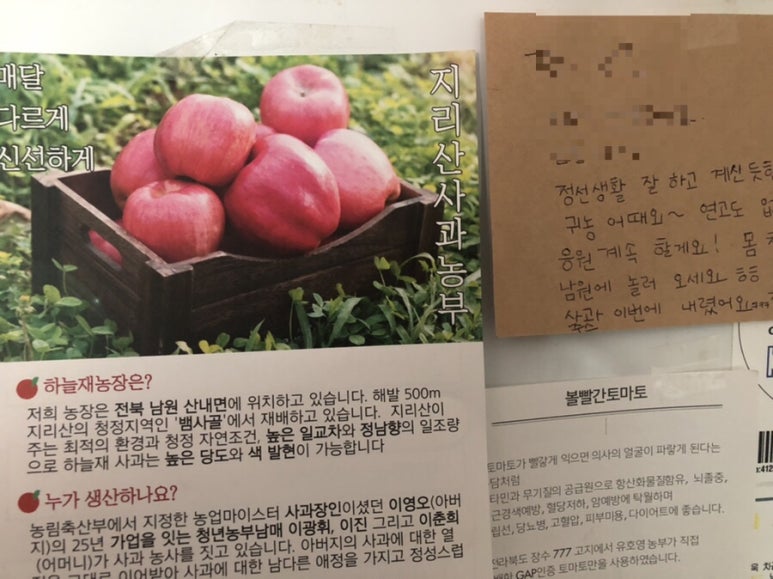 매달
다르게
신선하게
지리산사과농부
하늘재농장은?
저희 농장은 전북 남원 산내면에 위치하고 있습니다. 해발 500m
지리산의 청정지역인 '뱀사골'에서 재배하고 있습니다. 지리산이
주는 최적의 환경과 청정 자연조건, 높은 일교차와 정남향의 일조량
으로 하늘재 사과는 높은 당도와 색 발현이 가능합니다
누가 생산하나요?
농림축산부에서 지정한 농업마이스터 사과장인이셨던 이영오(아버
지)의 25년 가업을 잇는 청년농부남매 이광휘, 이진 그리고 이춘희
(어머니)가 사과 농사를 짓고 있습니다. 아버지의 사과에 대한 열
이어받아 사과에 대한 남다른 애정을 가지고 정성스럽
정선생활 잘 하고 계신듯하
귀농 어때요~ 연고도 없
응원 계속 할게요! 몸
남원에 놀러 오세요 ㅎㅎ
이번에 내렸어요
볼빨간토마토
토마토가 빨갛게 익으면 의사의 얼굴이 파랗게 된다는
담처럼
타민과 무기질의 공급원으로 항산화물질함유, 뇌졸중,
근경색예방, 혈당저하, 암예방에 탁월하며
립선, 당뇨병, 고혈압, 피부미용, 다이어트에 좋습니다.
전라북도 장수 777 고지에서 유호영 농부가 직접
GAP인증 토마토만을 사용하였습니다.